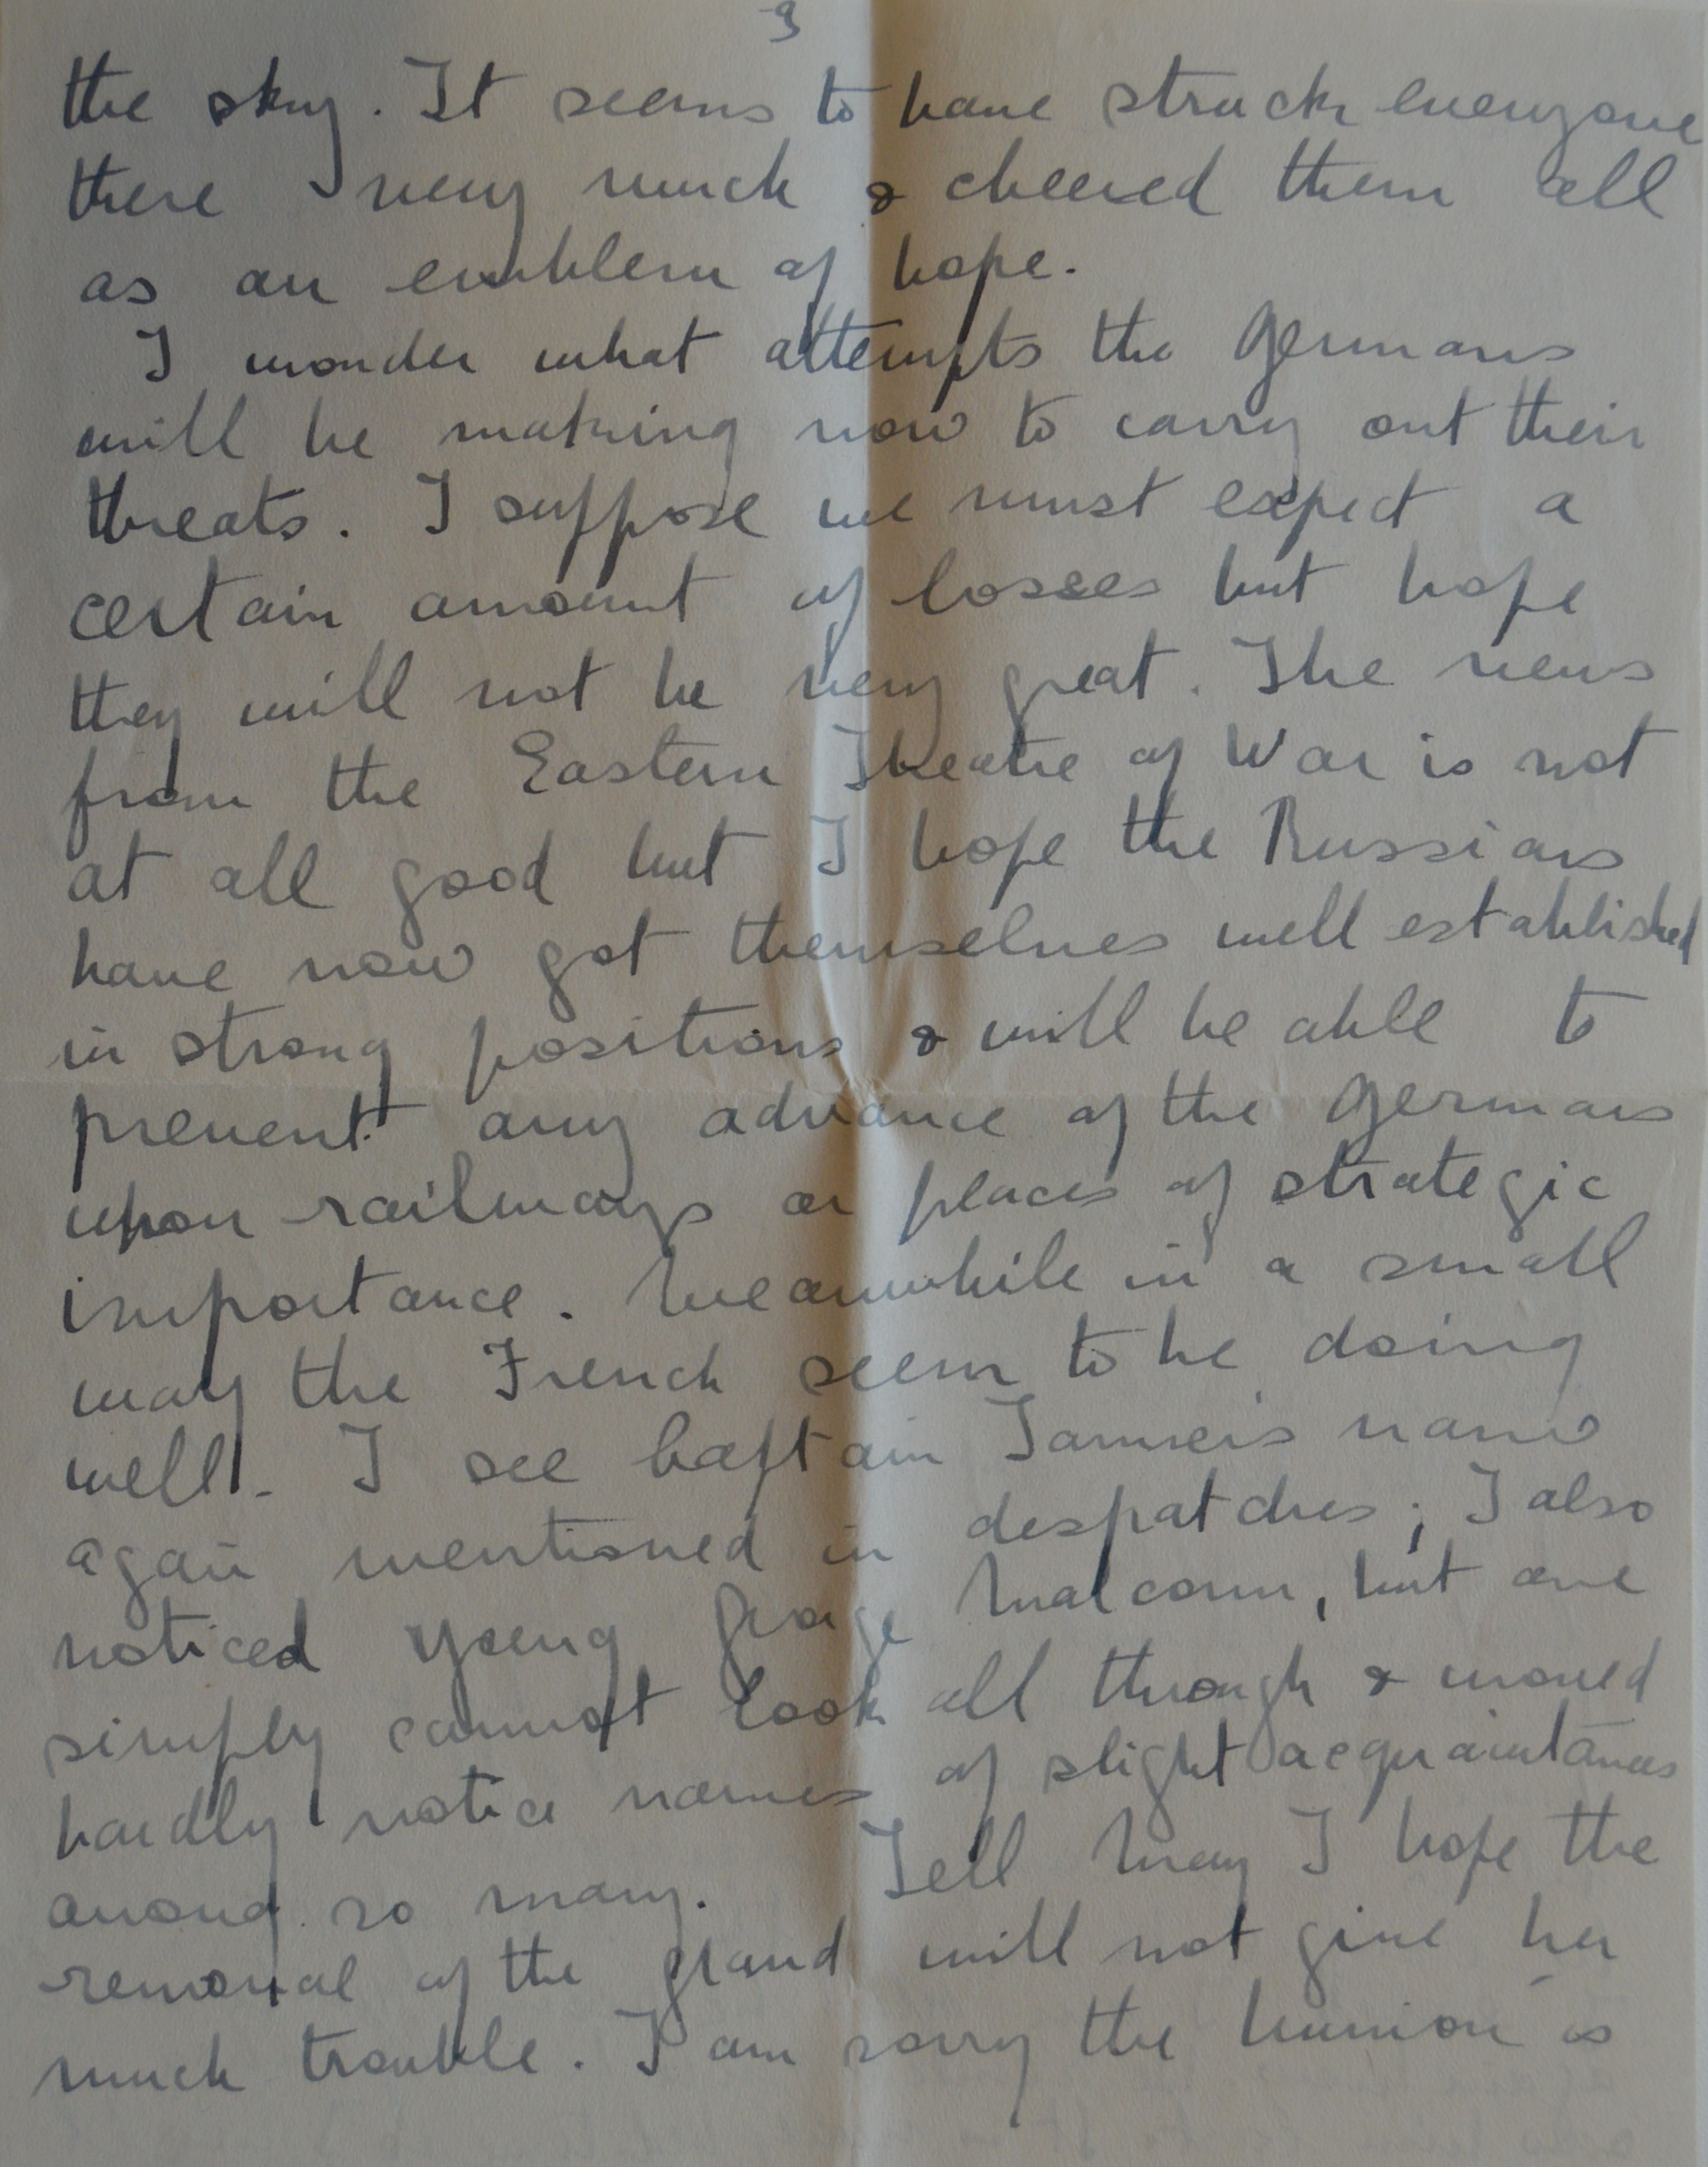 3
the sky. It seems to have struck everyone
there very much & cheered them all
as an emblem of hope.
I wonder what attempts the Germans
will be making now to carry out their
threats. I suppose we must expect a
certain amount of losses but hope
they will not be very great. The news
from the Eastern Theatre of War is not
at all good but I hope the Russians
have now got themselves well established
in strong positions & will be able to
prevent any advance of the Germans
upon railways or places of strategic
importance. Meanwhile in a small
way the French seem to be doing
well. I see Captain name
again mentioned in despatches; I also
noticed young George Malcolm, but one
simply cannot look all through & would
hardly notice names of slight acquaintances
among so many. Tell May I hope the
removal of the gland will not give her
much trouble. I am sorry the bunion is